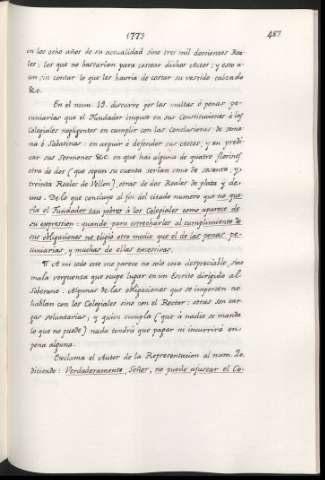 1773
487
en los ocho años de su actualidad sino tres mil doscientos Rea-
les; los que no bastarian para costear dichos actos; y esto a-
un sin contar lo que les havria de costar su vestido calzado
&c.
En el num. 19. discurre por las multas ó penas pe-
cuniarias que el Fundador impuso en sus Constituciones á los
Colegiales negligentes en cumplir con las Conclusiones de sema-
na ó Sabatinas: en arguir ó defender sus actos, y en predi-
car sus Sermones &c. en que hai alguna de quatro florines
otra de dos (que segun su cuenta serian una de sesenta, y
treinta Reales de Vellon), otras de dos Reales de plata y de
uno. De lo que concluye al fin del citado numero que no que-
ria el Fundador tan pobres á los Colegiales como aparece de
su expresion: quando para estrecharlos al cumplimiento de
sus obligaciones no eligió otro medio que el de las penas pe-
cuniarias, y muchas de ellas excesivas.
¶ A mi todo esto me parece no solo cosa despreciable, sino
mala verguenza que ocupe lugar en un Escrito dirigido al
Soberano. Algunas de las obligaciones que se imponen no
hablan con los Colegiales sino con el Rector: otras son car-
gas voluntarias, y quien cumpla (que á nadie se manda
lo que no puede) nada tendrá que pagar ni incurrirá en
pena alguna.
Exclama el Autor de la Representacion al num. 20.
diciendo: Verdaderamente, Señor, no puede ajustar el Co-